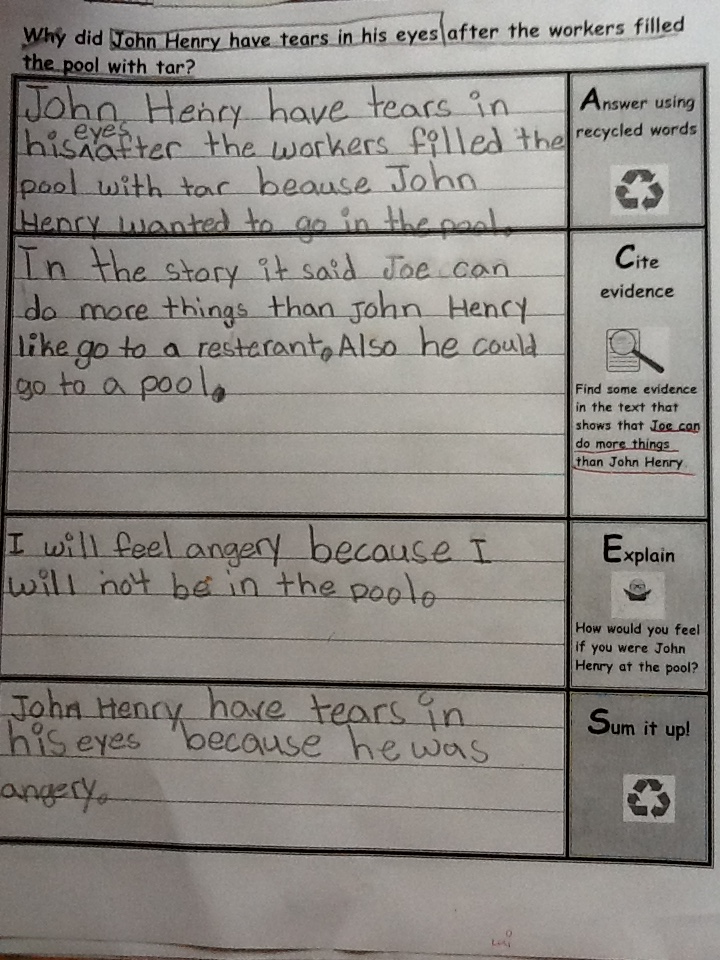 Why did John Henry have tears in his eyes after the workers filled
the pool with tar?
John Henry have tears in
eyes
his^after the workers filled the
pool with tar beause John
Henry wanted to go in the pool.
Answer using
recycled words
In the story it said Joe can
do more things than John Henry
like go to a resterant. Also he could
go to a pool.
Cite
evidence
Find some evidence
in the text that
shows that Joe can
do more things
than John Henry.
I will feel angery because I
will not be in the pool.
Explain
How would you feel
if you were John
Henry at the pool?
John Henry have tears in
his eyes because he was
angery.
Sum it up!